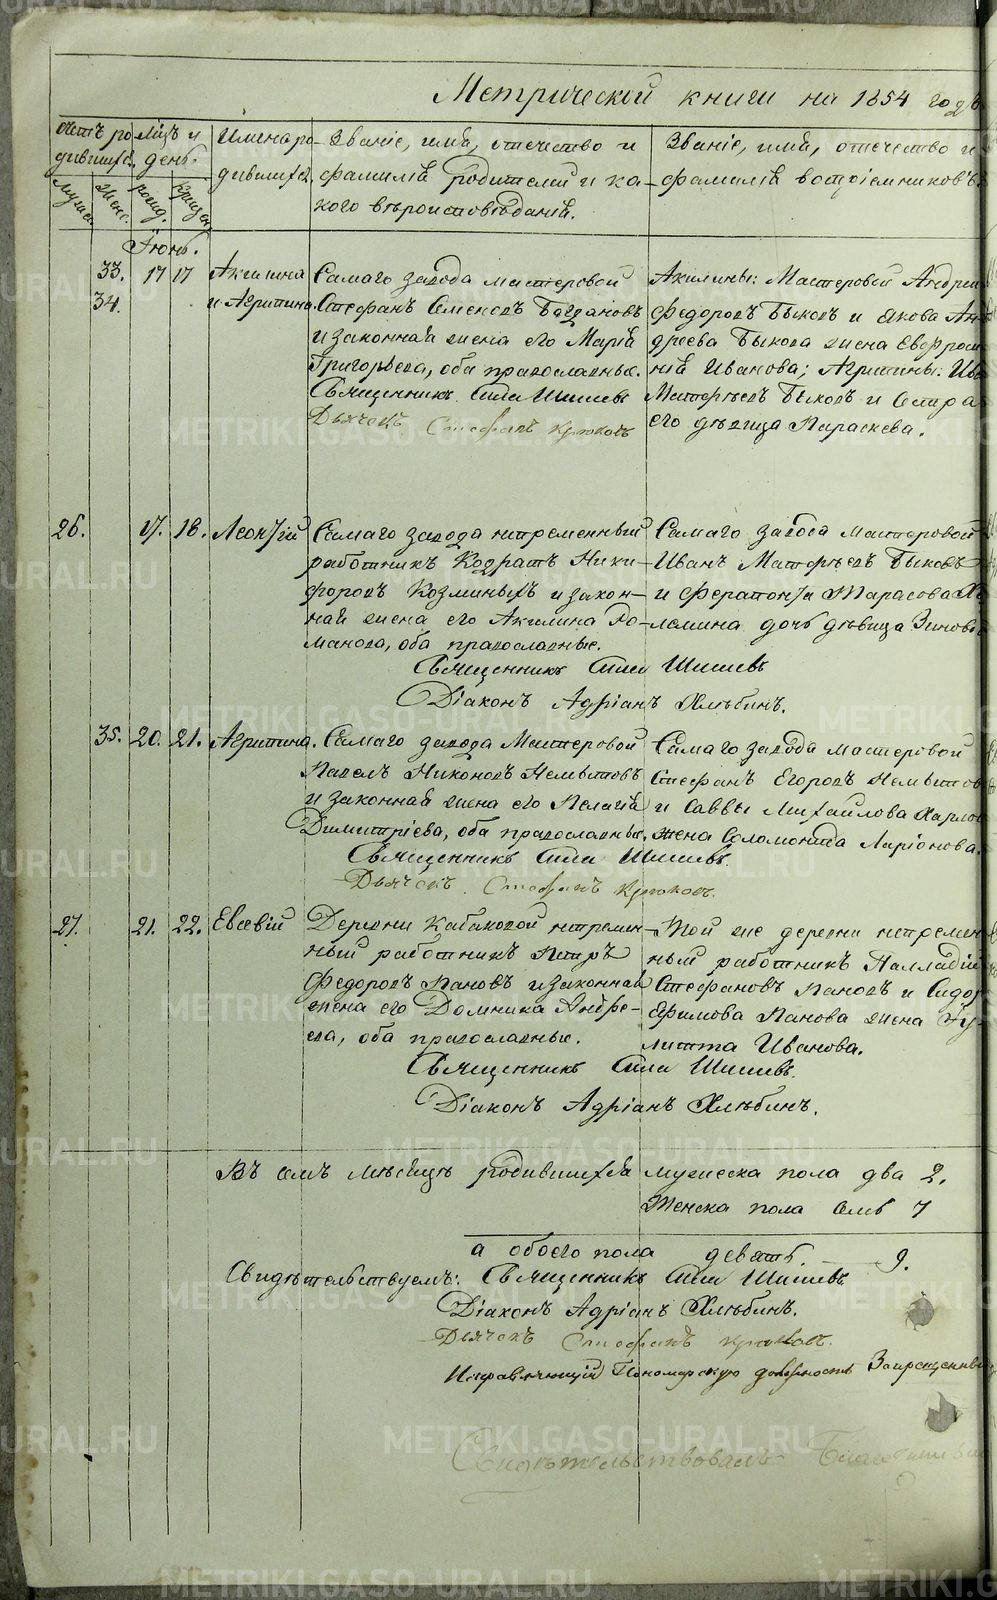 Метрической книги на 1854 годъ
Счетъ ро-
дившихся.
Мѣсяцъ и
день.
Имена ро-
дившихся.
Званіе, имя, отечество и
фамилія родителей и ка-
кого вѣроисповѣданія.
Званіе, имя, отечество и
фамилія воспріемниковъ
Мужеск.
Женс.
рожд.
крещен.
Іюнь.
33.
34.
17
17
Акилина
и Агрипина.
Самаго завода мастеровой
Стефанъ Семеновъ Богдановъ
и законная жена его Марія
Григорьева, оба православные.
Священникъ Сила Шишевъ
Дьячокъ Стефанъ Крюковъ
Акилины: Мастеровой Андрей
Федоровъ Быковъ и Якова Ан-
дреева Быкова жена Евфроси-
нія Иванова; Агрипины: Ива
Матфѣевъ Быковъ и Сестра
его дѣвица Параскева.
26.
17.
18.
Леонтій
Самаго завода непременный
работникъ Кодратъ Ники-
форовъ Козминыхъ и закон-
ная жена его Акилина Ро-
манова, оба православные.
Священникъ Сила Шишевъ
Діаконъ Адріанъ Хлѣбинъ.
Самаго завода Мастеровой
Иванъ Матфѣевъ Быковъ
и Ферапонта Тарасова
дочь дѣвица Зинові
35.
20.
21.
Агрипина.
Самаго завода Мастеровой
Павелъ Никоновъ Немытовъ
и законная жена его Пелагія
Димитріева, оба православные.
Священникъ Сила Шишевъ.
Дьячокъ Стефанъ Крюковъ.
Самаго завода мастеровой
Стефанъ Егоровъ Немытов
и Саввы Михайлова Харло
жена Соломонида Ларіонова.
27.
21.
22.
Евсевій
Деревни Кабаковой непремен-
ный работникъ Петръ
Федоровъ Пановъ и законная
жена его Домника Андре-
ева, оба православные.
Священникъ Сила Шишевъ.
Діаконъ Адріанъ Хлѣбинъ.
Той же деревни непремен
ный работникъ Палладій
Стефановъ Пановъ и Сидор
Ефимова Панова жена Іу-
литта Иванова.
Въ семъ мѣсяцѣ родившихся мужеска пола два 2.
Женска пола семь 7
а обоего пола девять. 9.
Свидѣтельствуемъ: Священникъ Сила Шишевъ
Діаконъ Адріанъ Хлѣбинъ.
Дьячокъ Стефанъ Крюковъ.
Исправляющій Пономарскую должность Запрещенный
Свидѣтельствовалъ Благочинный
METRIKI.GASO-URAL.RU